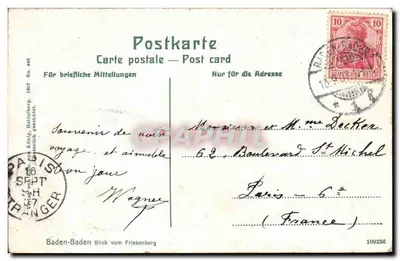 Postkarte
Carte postale — Post card
Für briefliche Mitteilungen
Nur für die Adresse
10 10
BADEN-BADEN
Souvenir de notre
voyage, et aimable
bonjour
Wagner
Monsieur et Mme Decker
62, Boulevard St Michel
Paris - 6e
(France)
PARIS
16
SEPT
07
ETRANGER
Heidelberg. 1907 No. 486
Baden-Baden Blick vom Friesenberg
109236